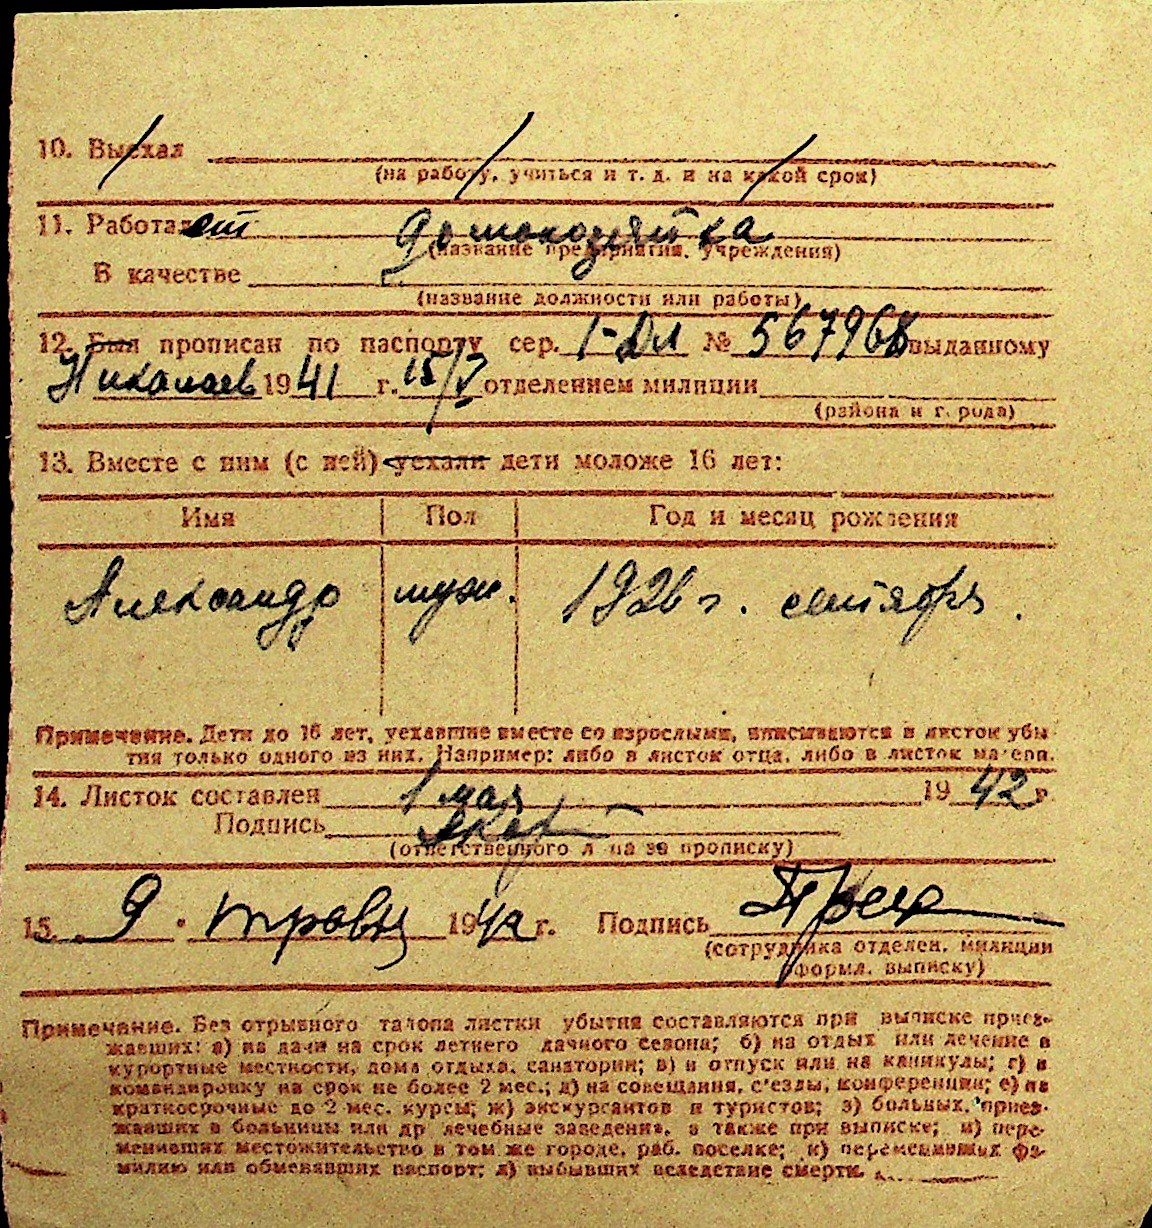 10. Выехал
(на работу, учиться и т. д. и на какой срок)
11. Работает домохозяйка
(название предприятия, учреждения)
В качестве
(название должности или работы)
12. Был прописан по паспорту сер. 1-Дл № 567968 выданному
Николаев 1941 г. 15/V отделением милиции
(района и города)
13. Вместе с ним (с ней) уехали дети моложе 16 лет:
Имя Пол Год и месяц рождения
Александр муж. 1926 г. сентября.
Примечание. Дети до 16 лет, уехавшие вместе со взрослыми, вписываются в листок убы-
тия только одного из них. Например: либо в листок отца, либо в листок матери.
14. Листок составлен 1 мая 1942 г.
Подпись
(ответственного л на за прописку)
15. 9 · травня 1942 г. Подпись
(сотрудника отделен. милиции
оформл. выписку)
Примечание. Без отрывного талона листки убытия составляются при выписке приез-
жавших: а) на дачи на срок летнего дачного сезона; б) на отдых или лечение в
курортные местности, дома отдыха, санатории; в) в отпуск или на каникулы; г) в
командировку на срок не более 2 мес.; д) на совещания, с'езды, конференции; е) на
краткосрочные до 2 мес. курсы; ж) экскурсантов и туристов; з) больных, приез-
жавших в больницы или др лечебные заведения, а также при выписке; и) пере-
менивших местожительство в том же городе, раб. поселке; к) переменивших фа-
милию или обменявших паспорт; л) выбывших вследствие смерти.